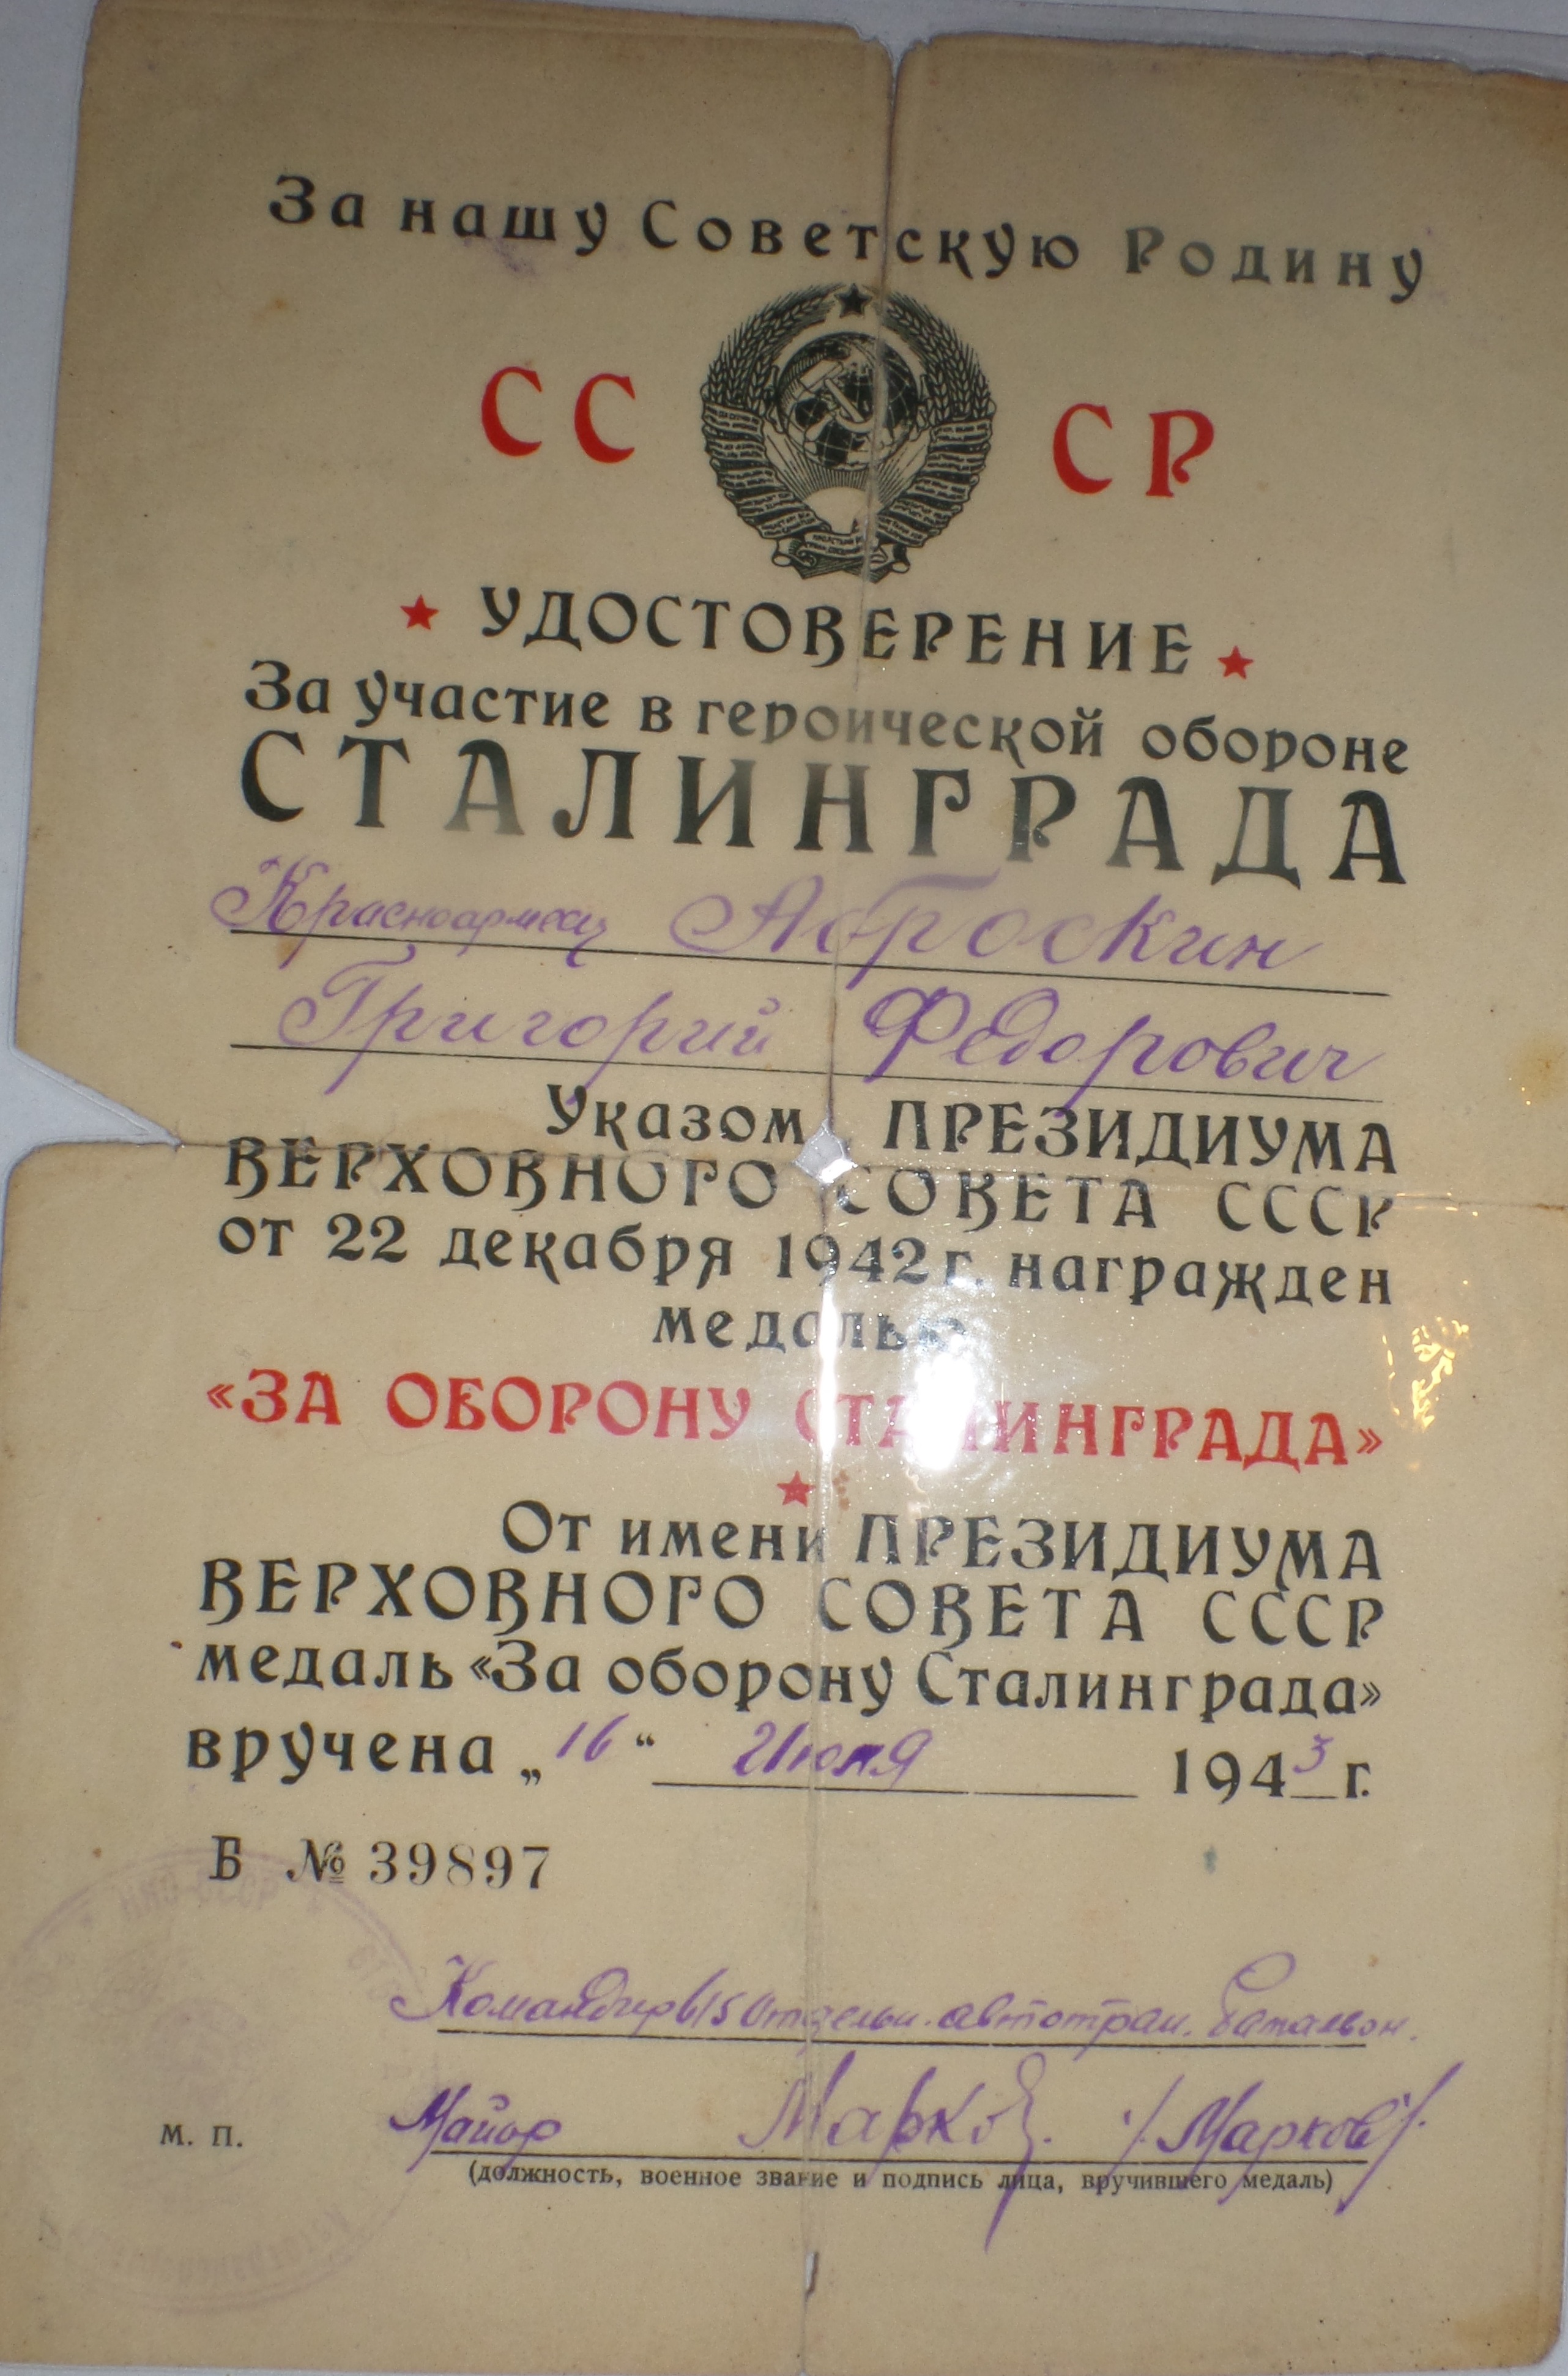 За нашу Советскую Родину
СС СР
УДОСТОВЕРЕНИЕ
За участие в героической обороне
СТАЛИНГРАДА
Красноармеец Аброскин
Григорий Федорович
Указом ПРЕЗИДИУМА
ВЕРХОВНОГО СОВЕТА СССР
от 22 декабря 1942 г. награжден
медалью
«ЗА ОБОРОНУ СТАЛИНГРАДА»
От имени ПРЕЗИДИУМА
ВЕРХОВНОГО СОВЕТА СССР
медаль «За оборону Сталинграда»
вручена „16“ Июля 1943 г.
Б № 39897
Командир 615 отдельн. автотран. баталион.
Майор Марков. /Марков/
М. П.
(должность, военное звание и подпись лица, вручившего медаль)